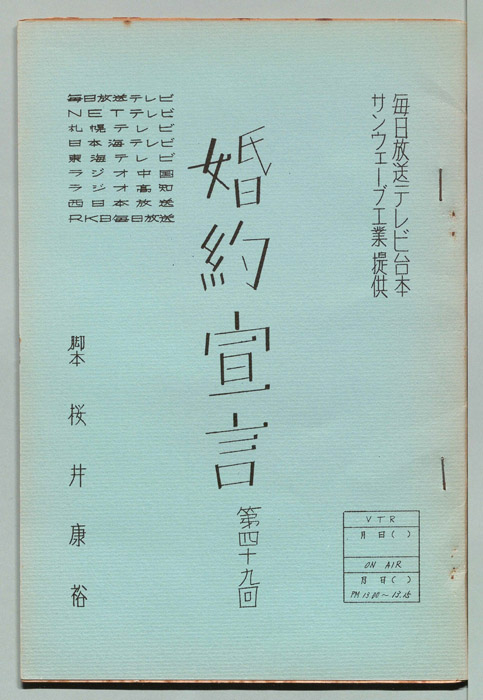 毎日放送テレビ台本
サンウェーブ工業 提供
婚約宣言 第四十九回
毎日放送テレビ
NETテレビ
札幌テレビ
日本海テレビ
東海テレビ
ラジオ中国
ラジオ高知
西日本放送
RKB毎日放送
脚本 桜井康裕
VTR
月 日( )
ON AIR
月 日( )
PM 13.00～13.15